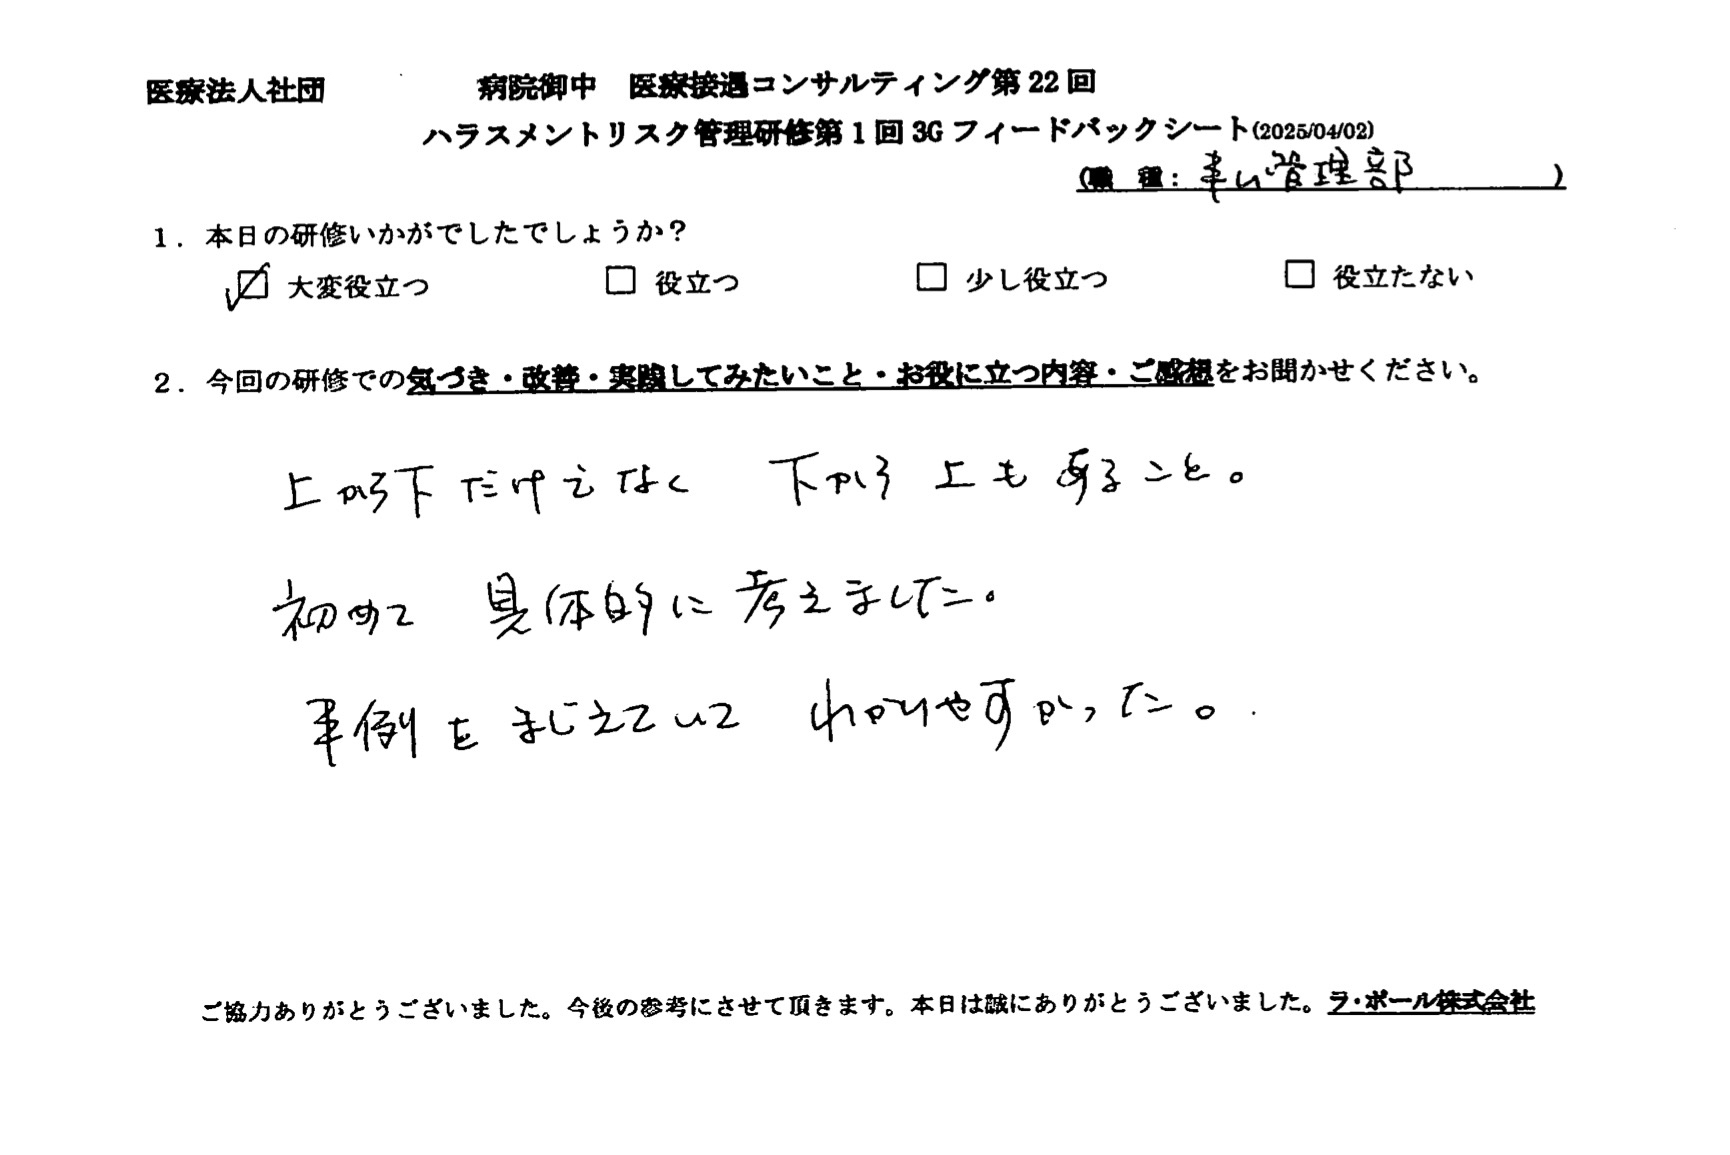 医療法人社団 病院御中 医療接遇コンサルティング第22回
ハラスメントリスク管理研修第1回3Gフィードバックシート(2025/04/02)
(職 種: 管理部 )
1. 本日の研修いかがでしたでしょうか?
☑ 大変役立つ □ 役立つ □ 少し役立つ □ 役立たない
2. 今回の研修での気づき・改善・実践してみたいこと・お役に立つ内容・ご感想をお聞かせください。
上から下だけでなく 下から上もあること。
初めて 具体的に考えました。
事例をまじえていて わかりやすかった。
ご協力ありがとうございました。今後の参考にさせて頂きます。本日は誠にありがとうございました。ラ・ポール株式会社